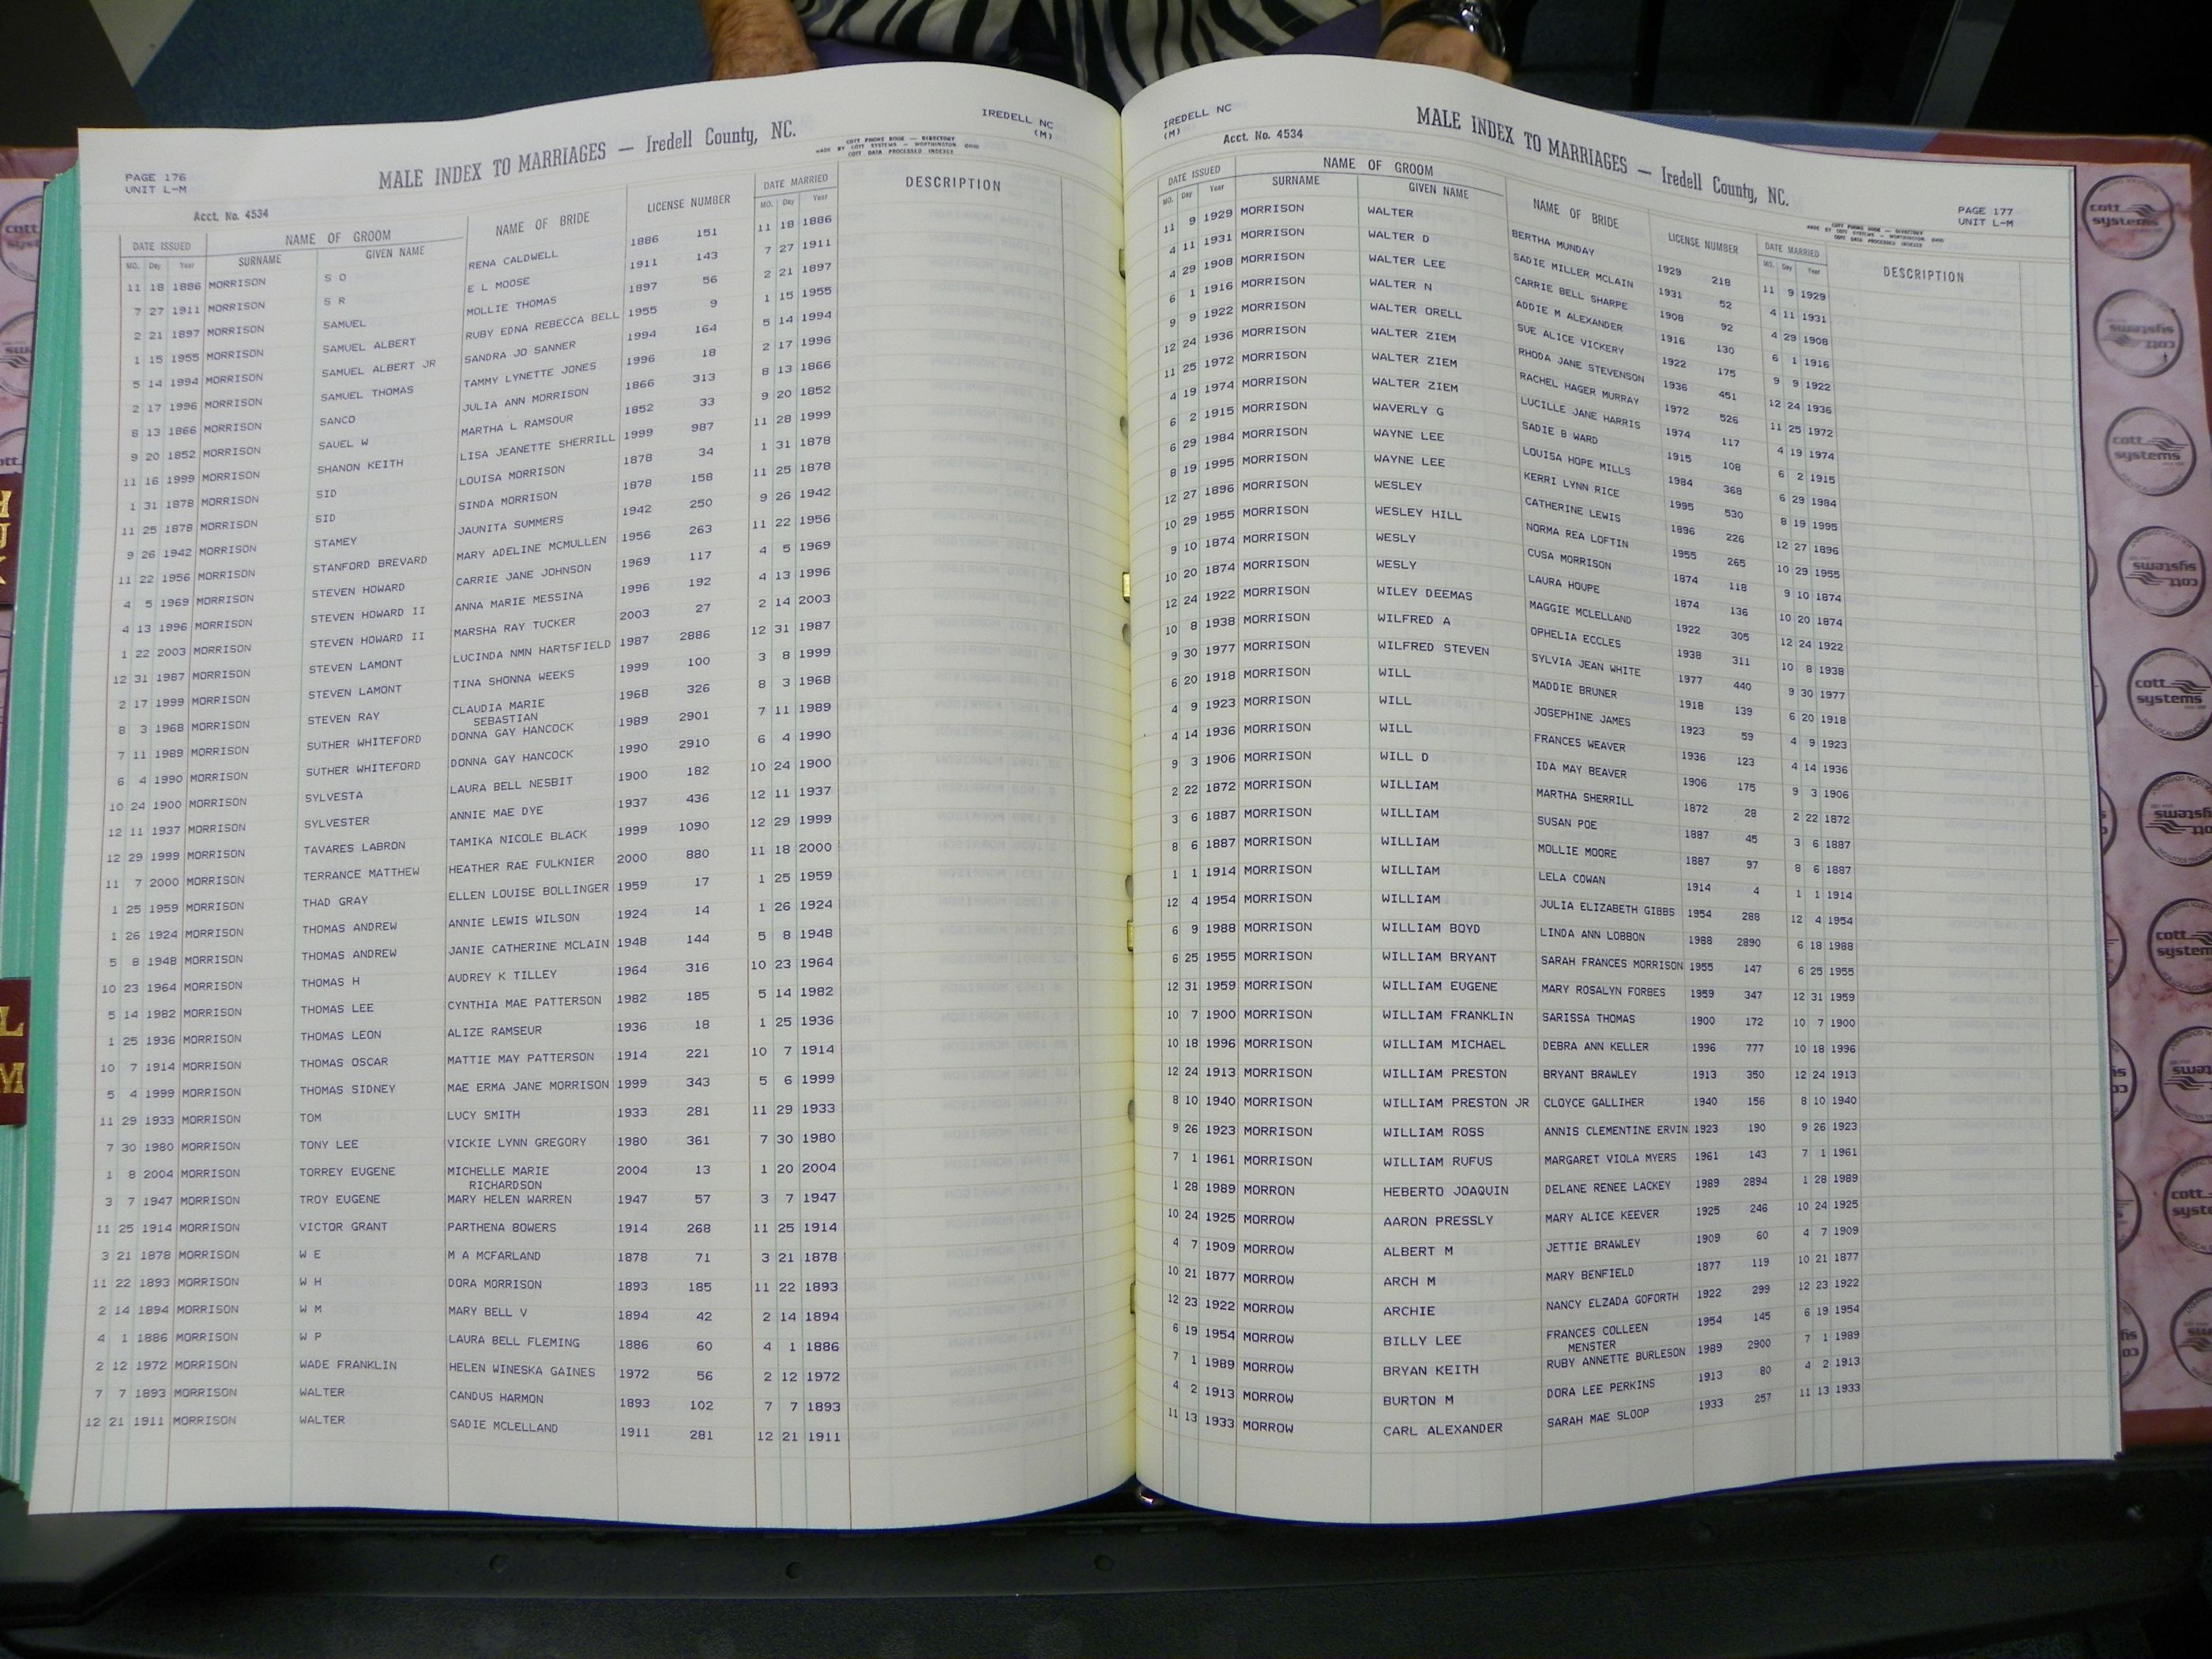 IREDELL NC
(M)
PAGE 176
UNIT L-M
MALE INDEX TO MARRIAGES — Iredell County, NC.
MADE BY COTT SYSTEMS — WORTHINGTON OHIO
COTT DATA PROCESSED INDEXES
Acct. No. 4534
DATE ISSUED NAME OF GROOM NAME OF BRIDE LICENSE NUMBER DATE MARRIED DESCRIPTION
MO. Day Year SURNAME GIVEN NAME MO. Day Year
11 18 1886 MORRISON S O RENA CALDWELL 1886 151 11 18 1886
7 27 1911 MORRISON S R E L MOOSE 1911 143 7 27 1911
2 21 1897 MORRISON SAMUEL MOLLIE THOMAS 1897 56 2 21 1897
1 15 1955 MORRISON SAMUEL ALBERT RUBY EDNA REBECCA BELL 1955 9 1 15 1955
5 14 1994 MORRISON SAMUEL ALBERT JR SANDRA JO SANNER 1994 164 5 14 1994
2 17 1996 MORRISON SAMUEL THOMAS TAMMY LYNETTE JONES 1996 18 2 17 1996
8 13 1866 MORRISON SANCO JULIA ANN MORRISON 1866 313 8 13 1866
9 20 1852 MORRISON SAUEL W MARTHA L RAMSOUR 1852 33 9 20 1852
11 16 1999 MORRISON SHANON KEITH LISA JEANETTE SHERRILL 1999 987 11 28 1999
1 31 1878 MORRISON SID LOUISA MORRISON 1878 34 1 31 1878
11 25 1878 MORRISON SID SINDA MORRISON 1878 158 11 25 1878
9 26 1942 MORRISON STAMEY JAUNITA SUMMERS 1942 250 9 26 1942
11 22 1956 MORRISON STANFORD BREVARD MARY ADELINE MCMULLEN 1956 263 11 22 1956
4 5 1969 MORRISON STEVEN HOWARD CARRIE JANE JOHNSON 1969 117 4 5 1969
4 13 1996 MORRISON STEVEN HOWARD II ANNA MARIE MESSINA 1996 192 4 13 1996
1 22 2003 MORRISON STEVEN HOWARD II MARSHA RAY TUCKER 2003 27 2 14 2003
12 31 1987 MORRISON STEVEN LAMONT LUCINDA NMN HARTSFIELD 1987 2886 12 31 1987
2 17 1999 MORRISON STEVEN LAMONT TINA SHONNA WEEKS 1999 100 3 8 1999
8 3 1968 MORRISON STEVEN RAY CLAUDIA MARIE 1968 326 8 3 1968
SEBASTIAN
7 11 1989 MORRISON SUTHER WHITEFORD DONNA GAY HANCOCK 1989 2901 7 11 1989
6 4 1990 MORRISON SUTHER WHITEFORD DONNA GAY HANCOCK 1990 2910 6 4 1990
10 24 1900 MORRISON SYLVESTA LAURA BELL NESBIT 1900 182 10 24 1900
12 11 1937 MORRISON SYLVESTER ANNIE MAE DYE 1937 436 12 11 1937
12 29 1999 MORRISON TAVARES LABRON TAMIKA NICOLE BLACK 1999 1090 12 29 1999
11 7 2000 MORRISON TERRANCE MATTHEW HEATHER RAE FULKNIER 2000 880 11 18 2000
1 25 1959 MORRISON THAD GRAY ELLEN LOUISE BOLLINGER 1959 17 1 25 1959
1 26 1924 MORRISON THOMAS ANDREW ANNIE LEWIS WILSON 1924 14 1 26 1924
5 8 1948 MORRISON THOMAS ANDREW JANIE CATHERINE MCLAIN 1948 144 5 8 1948
10 23 1964 MORRISON THOMAS H AUDREY K TILLEY 1964 316 10 23 1964
5 14 1982 MORRISON THOMAS LEE CYNTHIA MAE PATTERSON 1982 185 5 14 1982
1 25 1936 MORRISON THOMAS LEON ALIZE RAMSEUR 1936 18 1 25 1936
10 7 1914 MORRISON THOMAS OSCAR MATTIE MAY PATTERSON 1914 221 10 7 1914
5 4 1999 MORRISON THOMAS SIDNEY MAE ERMA JANE MORRISON 1999 343 5 6 1999
11 29 1933 MORRISON TOM LUCY SMITH 1933 281 11 29 1933
7 30 1980 MORRISON TONY LEE VICKIE LYNN GREGORY 1980 361 7 30 1980
1 8 2004 MORRISON TORREY EUGENE MICHELLE MARIE 2004 13 1 20 2004
RICHARDSON
3 7 1947 MORRISON TROY EUGENE MARY HELEN WARREN 1947 57 3 7 1947
11 25 1914 MORRISON VICTOR GRANT PARTHENA BOWERS 1914 268 11 25 1914
3 21 1878 MORRISON W E M A MCFARLAND 1878 71 3 21 1878
11 22 1893 MORRISON W H DORA MORRISON 1893 185 11 22 1893
2 14 1894 MORRISON W M MARY BELL V 1894 42 2 14 1894
4 1 1886 MORRISON W P LAURA BELL FLEMING 1886 60 4 1 1886
2 12 1972 MORRISON WADE FRANKLIN HELEN WINESKA GAINES 1972 56 2 12 1972
7 7 1893 MORRISON WALTER CANDUS HARMON 1893 102 7 7 1893
12 21 1911 MORRISON WALTER SADIE MCLELLAND 1911 281 12 21 1911
IREDELL NC
(M)
Acct. No. 4534
MALE INDEX TO MARRIAGES — Iredell County, NC.
PAGE 177
UNIT L-M
DATE ISSUED NAME OF GROOM NAME OF BRIDE LICENSE NUMBER DATE MARRIED DESCRIPTION
MO. Day Year SURNAME GIVEN NAME MO. Day Year
11 9 1929 MORRISON WALTER BERTHA MUNDAY 1929 218 11 9 1929
4 11 1931 MORRISON WALTER D SADIE MILLER MCLAIN 1931 52 4 11 1931
4 29 1908 MORRISON WALTER LEE CARRIE BELL SHARPE 1908 92 4 29 1908
6 1 1916 MORRISON WALTER N ADDIE M ALEXANDER 1916 130 6 1 1916
9 9 1922 MORRISON WALTER ORELL SUE ALICE VICKERY 1922 175 9 9 1922
12 24 1936 MORRISON WALTER ZIEM RHODA JANE STEVENSON 1936 451 12 24 1936
11 25 1972 MORRISON WALTER ZIEM RACHEL HAGER MURRAY 1972 526 11 25 1972
4 19 1974 MORRISON WALTER ZIEM LUCILLE JANE HARRIS 1974 117 4 19 1974
6 2 1915 MORRISON WAVERLY G SADIE B WARD 1915 108 6 2 1915
6 29 1984 MORRISON WAYNE LEE LOUISA HOPE MILLS 1984 368 6 29 1984
8 19 1995 MORRISON WAYNE LEE KERRI LYNN RICE 1995 530 8 19 1995
12 27 1896 MORRISON WESLEY CATHERINE LEWIS 1896 226 12 27 1896
10 29 1955 MORRISON WESLEY HILL NORMA REA LOFTIN 1955 265 10 29 1955
9 10 1874 MORRISON WESLY CUSA MORRISON 1874 118 9 10 1874
10 20 1874 MORRISON WESLY LAURA HOUPE 1874 136 10 20 1874
12 24 1922 MORRISON WILEY DEEMAS MAGGIE MCLELLAND 1922 305 12 24 1922
10 8 1938 MORRISON WILFRED A OPHELIA ECCLES 1938 311 10 8 1938
9 30 1977 MORRISON WILFRED STEVEN SYLVIA JEAN WHITE 1977 440 9 30 1977
6 20 1918 MORRISON WILL MADDIE BRUNER 1918 139 6 20 1918
4 9 1923 MORRISON WILL JOSEPHINE JAMES 1923 59 4 9 1923
4 14 1936 MORRISON WILL FRANCES WEAVER 1936 123 4 14 1936
9 3 1906 MORRISON WILL D IDA MAY BEAVER 1906 175 9 3 1906
2 22 1872 MORRISON WILLIAM MARTHA SHERRILL 1872 28 2 22 1872
3 6 1887 MORRISON WILLIAM SUSAN POE 1887 45 3 6 1887
8 6 1887 MORRISON WILLIAM MOLLIE MOORE 1887 97 8 6 1887
1 1 1914 MORRISON WILLIAM LELA COWAN 1914 4 1 1 1914
12 4 1954 MORRISON WILLIAM JULIA ELIZABETH GIBBS 1954 288 12 4 1954
6 9 1988 MORRISON WILLIAM BOYD LINDA ANN LOBBON 1988 2890 6 18 1988
6 25 1955 MORRISON WILLIAM BRYANT SARAH FRANCES MORRISON 1955 147 6 25 1955
12 31 1959 MORRISON WILLIAM EUGENE MARY ROSALYN FORBES 1959 347 12 31 1959
10 7 1900 MORRISON WILLIAM FRANKLIN SARISSA THOMAS 1900 172 10 7 1900
10 18 1996 MORRISON WILLIAM MICHAEL DEBRA ANN KELLER 1996 777 10 18 1996
12 24 1913 MORRISON WILLIAM PRESTON BRYANT BRAWLEY 1913 350 12 24 1913
8 10 1940 MORRISON WILLIAM PRESTON JR CLOYCE GALLIHER 1940 156 8 10 1940
9 26 1923 MORRISON WILLIAM ROSS ANNIS CLEMENTINE ERVIN 1923 190 9 26 1923
7 1 1961 MORRISON WILLIAM RUFUS MARGARET VIOLA MYERS 1961 143 7 1 1961
1 28 1989 MORRON HEBERTO JOAQUIN DELANE RENEE LACKEY 1989 2894 1 28 1989
10 24 1925 MORROW AARON PRESSLY MARY ALICE KEEVER 1925 246 10 24 1925
4 7 1909 MORROW ALBERT M JETTIE BRAWLEY 1909 60 4 7 1909
10 21 1877 MORROW ARCH M MARY BENFIELD 1877 119 10 21 1877
12 23 1922 MORROW ARCHIE NANCY ELZADA GOFORTH 1922 299 12 23 1922
6 19 1954 MORROW BILLY LEE FRANCES COLLEEN 1954 145 6 19 1954
MENSTER
7 1 1989 MORROW BRYAN KEITH RUBY ANNETTE BURLESON 1989 2900 7 1 1989
4 2 1913 MORROW BURTON M DORA LEE PERKINS 1913 80 4 2 1913
11 13 1933 MORROW CARL ALEXANDER SARAH MAE SLOOP 1933 257 11 13 1933
cott systems